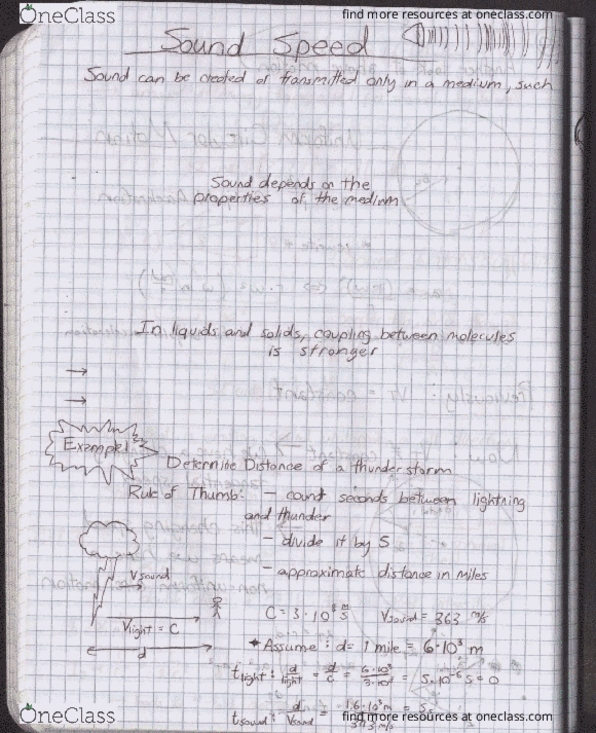 OneClass
find more resources at oneclass.com
Sound Speed
Sound can be created or transmitted only in a medium, such
Sound depends on the
properties of the medium
In liquids and solids, coupling between molecules
is stronger
→
→
Example!
Determine Distance of a thunderstorm
Rule of Thumb: - count seconds between lightning
and thunder
- divide it by 5
- approximate distance in miles
Vsound
Vlight = C
d
C = 3·10⁸ m/s Vsound = 363 m/s
Assume: d = 1 mile = 6·10³ m
tlight: d/light = d/c = 6·10³/3·10⁸ = 5·10⁻⁶ s = 0
tsound: d/Vsound = 1.6·10³m
OneClass
find more resources at oneclass.com